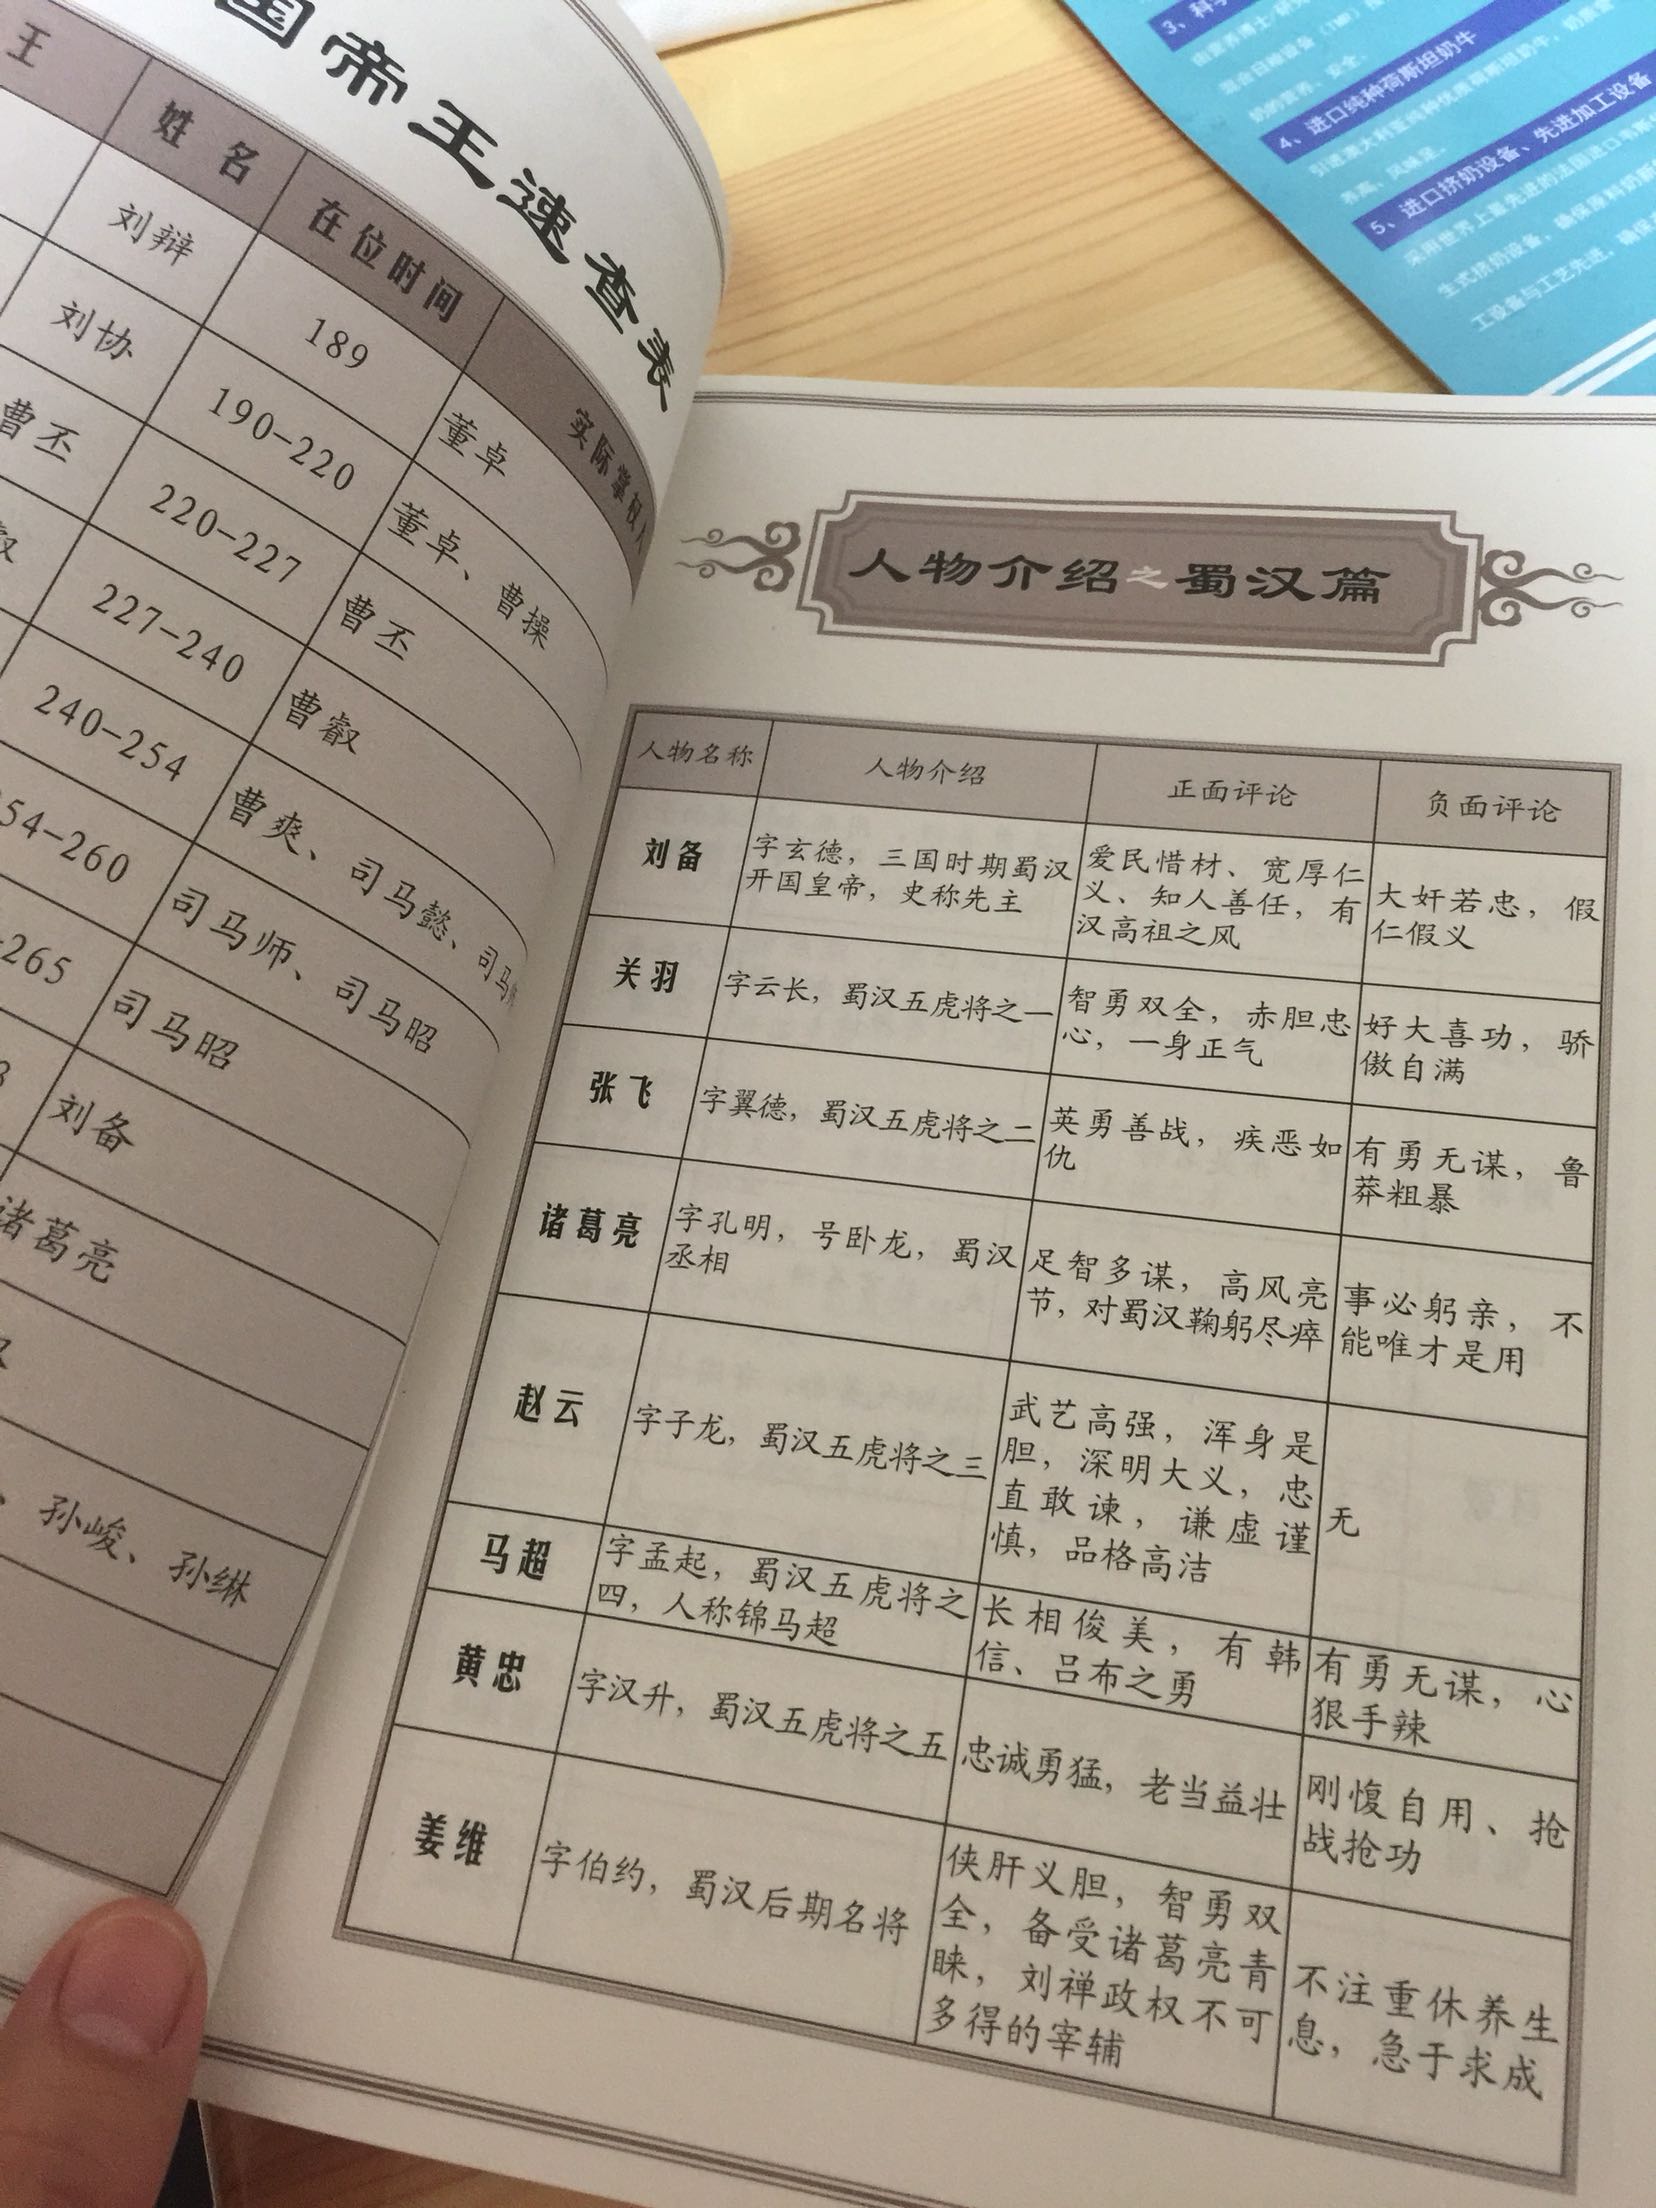 国帝王速查表
王 姓名 在位时间 实际掌权人
刘辩 189 董卓
刘协 190-220 董卓、曹操
曹丕 220-227 曹丕
227-240 曹叡
240-254 曹爽、司马懿、司马
54-260 司马师、司马昭
265 司马昭
刘备
诸葛亮
孙峻、孙綝
人物介绍之蜀汉篇
人物名称 人物介绍 正面评论 负面评论
刘备
字玄德，三国时期蜀汉
开国皇帝，史称先主
爱民惜材、宽厚仁
义、知人善任，有
汉高祖之风
大奸若忠，假
仁假义
关羽
字云长，蜀汉五虎将之一
智勇双全，赤胆忠
心，一身正气
好大喜功，骄
傲自满
张飞
字翼德，蜀汉五虎将之二
英勇善战，疾恶如
仇
有勇无谋，鲁
莽粗暴
诸葛亮
字孔明，号卧龙，蜀汉
丞相
足智多谋，高风亮
节，对蜀汉鞠躬尽瘁
事必躬亲，不
能唯才是用
赵云
字子龙，蜀汉五虎将之三
武艺高强，浑身是
胆，深明大义，忠
直敢谏，谦虚谨
慎，品格高洁
无
马超
字孟起，蜀汉五虎将之
四，人称锦马超
长相俊美，有韩
信、吕布之勇
有勇无谋，心
狠手辣
黄忠
字汉升，蜀汉五虎将之五
忠诚勇猛，老当益壮
刚愎自用、抢
战抢功
姜维
字伯约，蜀汉后期名将
侠肝义胆，智勇双
全，备受诸葛亮青
睐，刘禅政权不可
多得的宰辅
不注重休养生
息，急于求成
4、进口纯种荷斯坦奶牛
5、进口挤奶设备、先进加工设备